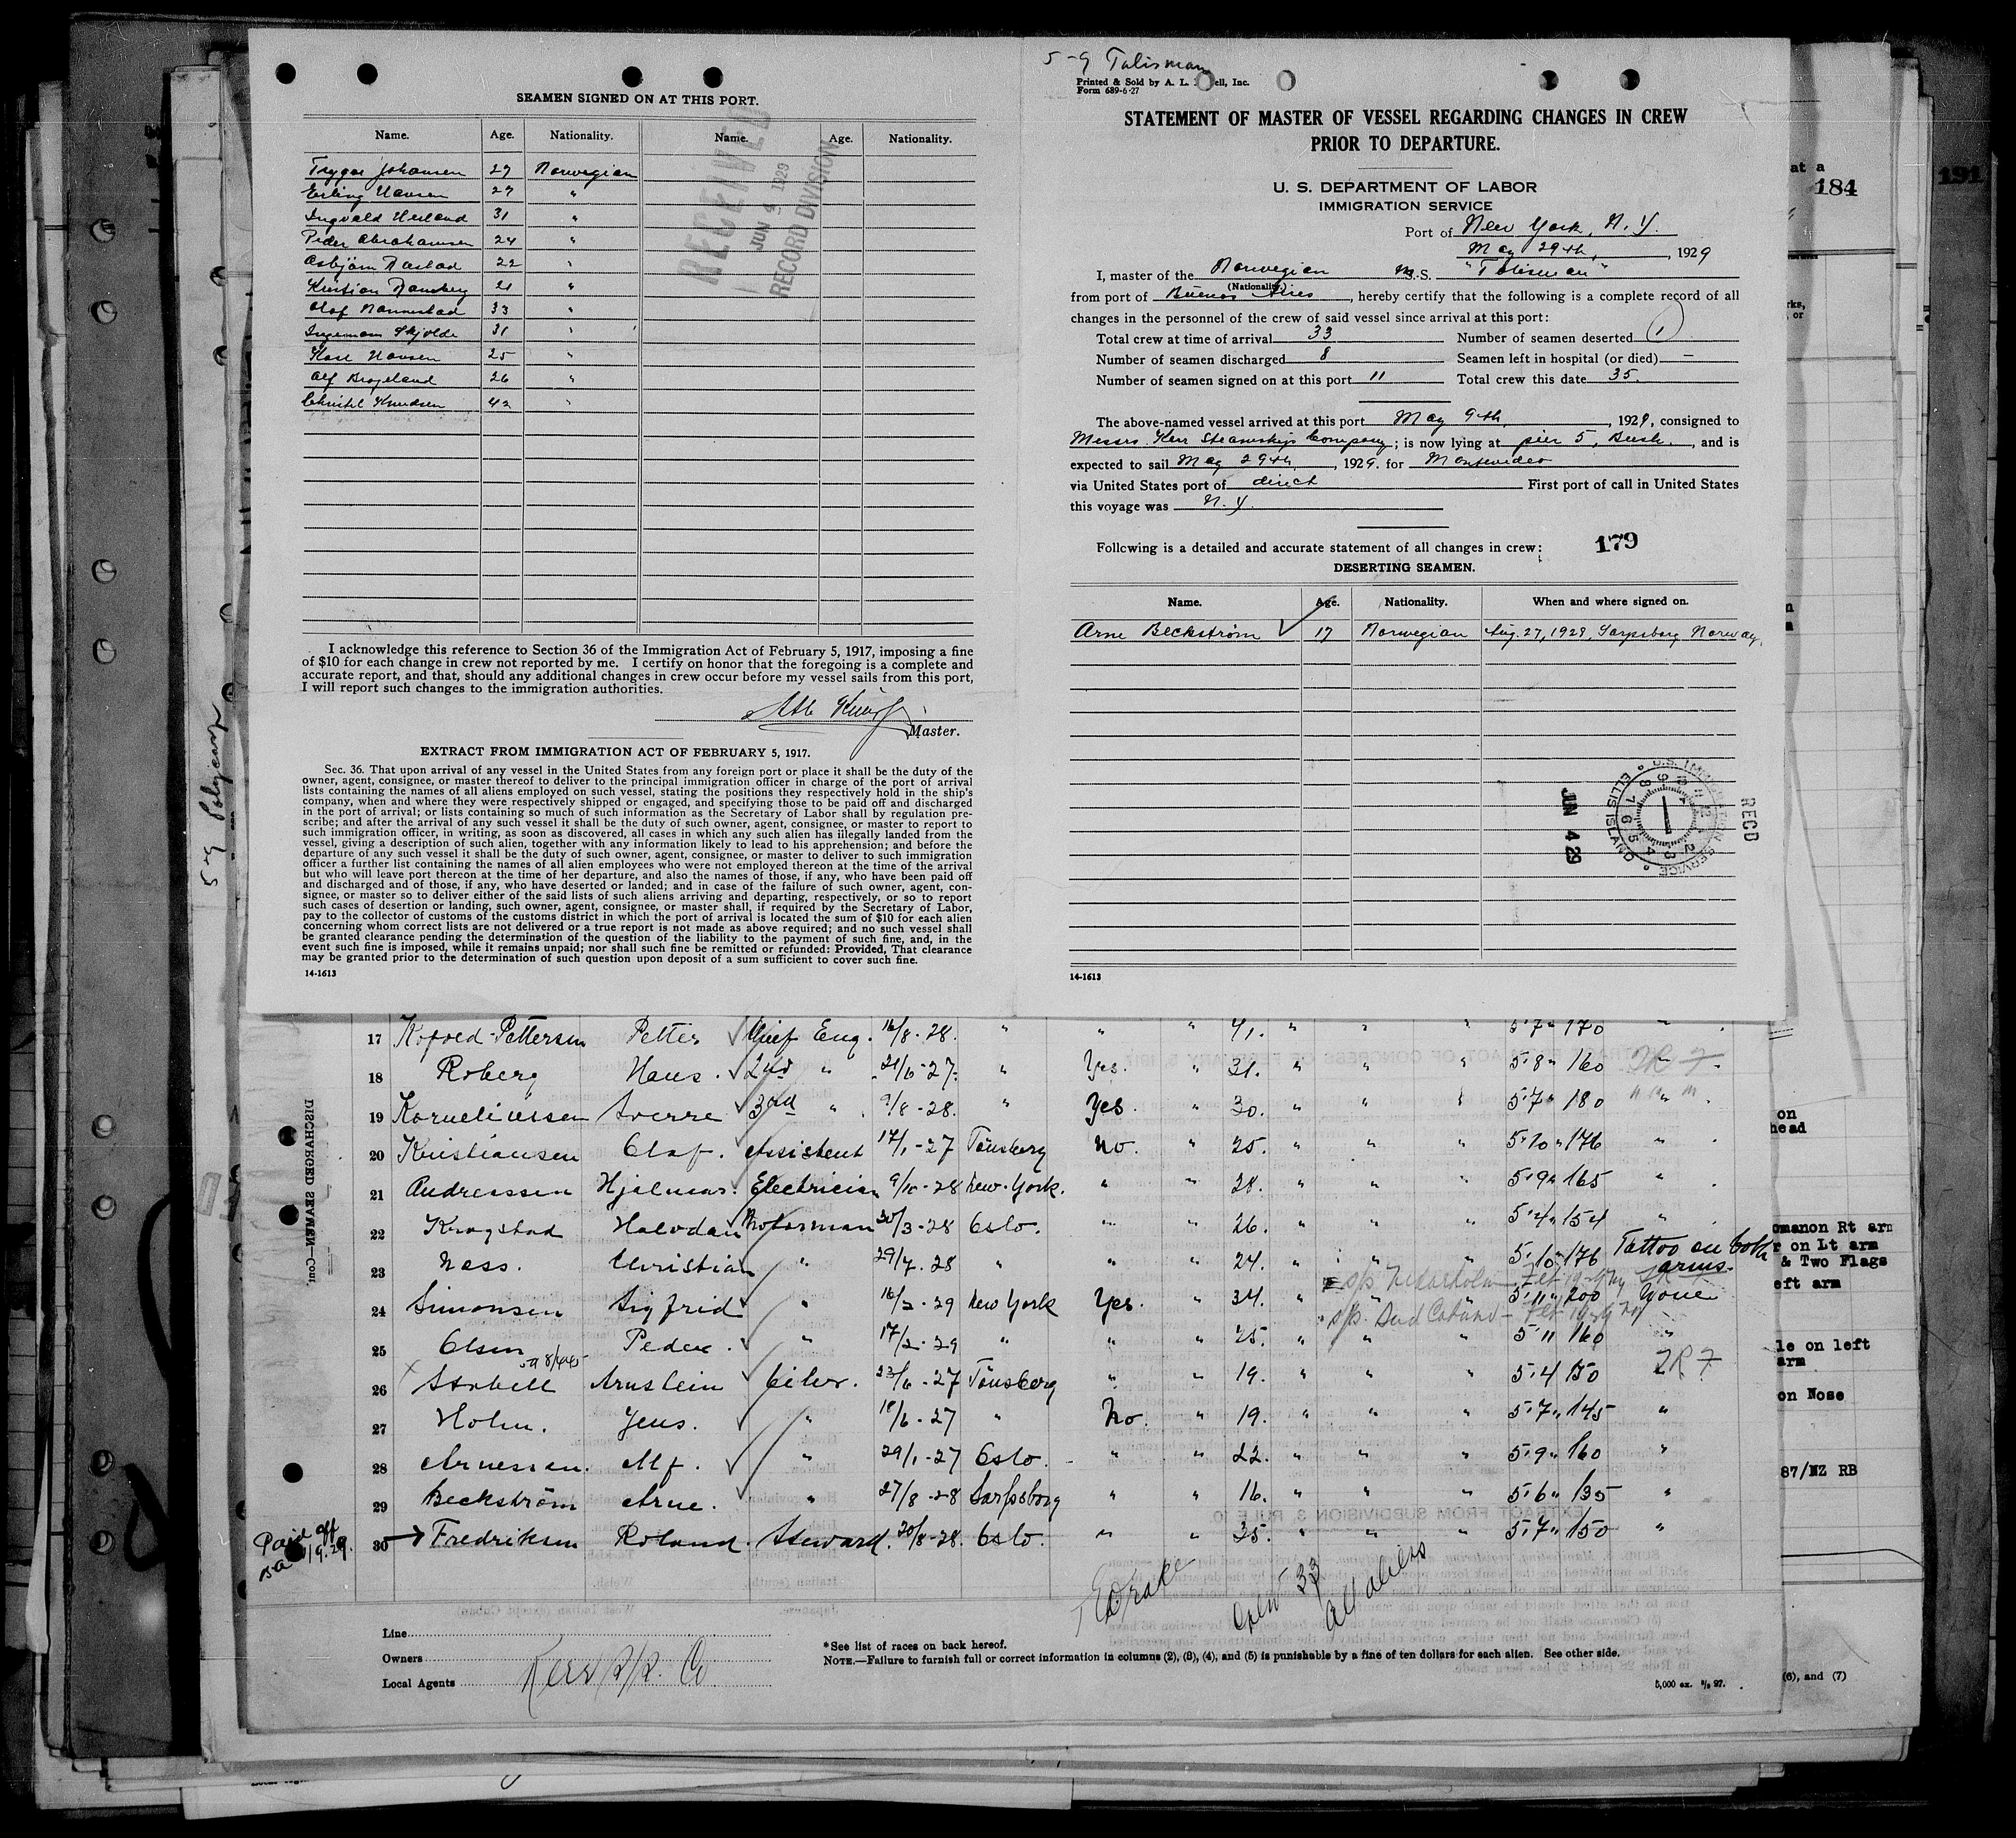 SEAMEN SIGNED ON AT THIS PORT.
Name. Age. Nationality. Name. Age. Nationality.
Trygve Johansen 27 Norwegian
Erling Hansen 27 "
Ingvald 31 "
Peder Abrahamsen 24 "
Asbjörn 22 "
Kristian 21 "
Olaf 33 "
Ingeman Skjolde 31 "
Karl Hansen 25 "
Alf 26 "
Knudsen 42 "
RECEIVED
JUN 4 1929
RECORD DIVISION
I acknowledge this reference to Section 36 of the Immigration Act of February 5, 1917, imposing a fine
of $10 for each change in crew not reported by me. I certify on honor that the foregoing is a complete and
accurate report, and that, should any additional changes in crew occur before my vessel sails from this port,
I will report such changes to the immigration authorities.
Master.
EXTRACT FROM IMMIGRATION ACT OF FEBRUARY 5, 1917.
Sec. 36. That upon arrival of any vessel in the United States from any foreign port or place it shall be the duty of the
owner, agent, consignee, or master thereof to deliver to the principal immigration officer in charge of the port of arrival
lists containing the names of all aliens employed on such vessel, stating the positions they respectively hold in the ship's
company, when and where they were respectively shipped or engaged, and specifying those to be paid off and discharged
in the port of arrival; or lists containing so much of such information as the Secretary of Labor shall by regulation pre-
scribe; and after the arrival of any such vessel it shall be the duty of such owner, agent, consignee, or master to report to
such immigration officer, in writing, as soon as discovered, all cases in which any such alien has illegally landed from the
vessel, giving a description of such alien, together with any information likely to lead to his apprehension; and before the
departure of any such vessel it shall be the duty of such owner, agent, consignee, or master to deliver to such immigration
officer a further list containing the names of all alien employees who were not employed thereon at the time of the arrival
but who will leave port thereon at the time of her departure, and also the names of those, if any, who have been paid off
and discharged and of those, if any, who have deserted or landed; and in case of the failure of such owner, agent, con-
signee, or master so to deliver either of the said lists of such aliens arriving and departing, respectively, or so to report
such cases of desertion or landing, such owner, agent, consignee, or master shall, if required by the Secretary of Labor,
pay to the collector of customs of the customs district in which the port of arrival is located the sum of $10 for each alien
concerning whom correct lists are not delivered or a true report is not made as above required; and no such vessel shall
be granted clearance pending the determination of the question of the liability to the payment of such fine, and, in the
event such fine is imposed, while it remains unpaid; nor shall such fine be remitted or refunded: Provided, That clearance
may be granted prior to the determination of such question upon deposit of a sum sufficient to cover such fine.
14-1613
5-9 Talisman
Printed & Sold by A. L. ell, Inc.
Form 689-6-27
STATEMENT OF MASTER OF VESSEL REGARDING CHANGES IN CREW
PRIOR TO DEPARTURE.
U. S. DEPARTMENT OF LABOR
IMMIGRATION SERVICE
Port of New York, N. Y.
May 29th, , 1929
I, master of the Norwegian M.S. "Talisman"
(Nationality.)
from port of Buenos Aires , hereby certify that the following is a complete record of all
changes in the personnel of the crew of said vessel since arrival at this port:
Total crew at time of arrival 33 Number of seamen deserted 1
Number of seamen discharged 8 Seamen left in hospital (or died) —
Number of seamen signed on at this port 11 Total crew this date 35.
The above-named vessel arrived at this port May 9th, , 1929, consigned to
Messrs. Kerr Steamship Company ; is now lying at pier 5, Bush. , and is
expected to sail May 29th, , 1929. for Montevideo
via United States port of direct First port of call in United States
this voyage was N. Y.
Following is a detailed and accurate statement of all changes in crew:
179
DESERTING SEAMEN.
Name. Age. Nationality. When and where signed on.
Arne Beckström 17 Norwegian Aug. 27, 1928, Sarpsborg Norway.
U.S. IMMIGRATION SERVICE
ELLIS ISLAND
RECD
JUN 4 29
14-1613
at a
184
191
17 Kofoed-Pettersen Petter Chief Eng. 16/8-28. " " " 41. " " " 5-7" 170 "
18 Roberg Hans. 2nd " 21/6-27. " Yes. " 31. " " " 5-8" 160
19 Korneliussen Sverre 3rd " 9/8-28. " Yes. " 30. " " " 5-7" 180
20 Kristiansen Olaf. Assistent 17/1-27 Tönsberg No. " 25. " " " 5-10" 176 "
21 Andresssen Hjalmar. Electrician 9/10-28 New-York. " " 28. " " " 5-9" 165 "
22 Krogstad Halvdan Motorman 30/3-28 Oslo. " " 26. " " " 5-4" 154 "
23 Ness. Christian " 29/7-28 " " " 24. " " " 5-10" 176 Tattoo on both
arms.
24 Simonsen Sigfrid " 16/2-29 New York Yes. " 34. " 5-11" 200 None
25 Olsen Peder. " 17/2-29 " " " 25. " " " 5-11 160 "
26 Arnstein Oiler. 23/6-27 Tönsberg " " 19. " " " 5-4 150
27 Holm. Jens. " 18/6-27 " No. " 19. " " " 5-7" 145 "
28 Arnessen. Alf. " 29/1-27 Oslo. " " 22. " " " 5-9" 160 "
29 Beckström Arne. " 27/8-28 Sarpsborg " " 16. " " " 5-6" 135 "
30 Fredriksen Roland. Steward. 20/8-28. Oslo. " " 35. " " " 5-7" 150 "
Paid off
DISCHARGED SEAMEN—Con
Crew 33
All aliens
Line
Owners
Local Agents Kerr S/S. Co
*See list of races on back hereof.
NOTE.—Failure to furnish full or correct information in columns (2), (3), (4), and (5) is punishable by a fine of ten dollars for each alien. See other side.
on
head
omanon Rt arm
r on Lt arm
& Two Flags
eft arm
le on left
arm
on Nose
87/NZ RB
(6), and (7)